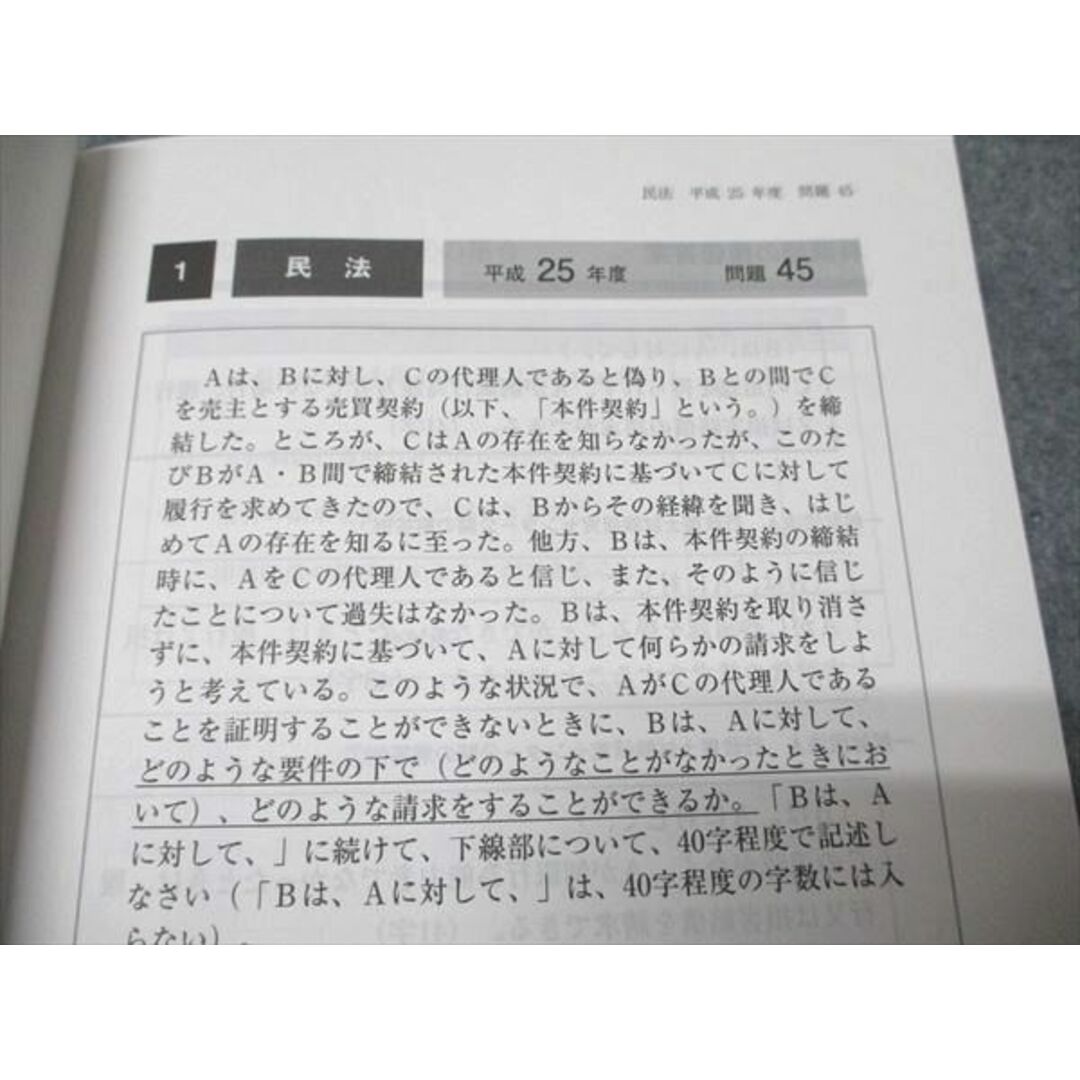 民法 平成 25 年度 問題 45
1 民 法 平成 25 年度 問題 45
Aは、Bに対し、Cの代理人であると偽り、Bとの間でC
を売主とする売買契約（以下、「本件契約」という。）を締
結した。ところが、CはAの存在を知らなかったが、このた
びBがA・B間で締結された本件契約に基づいてCに対して
履行を求めてきたので、Cは、Bからその経緯を聞き、はじ
めてAの存在を知るに至った。他方、Bは、本件契約の締結
時に、AをCの代理人であると信じ、また、そのように信じ
たことについて過失はなかった。Bは、本件契約を取り消さ
ずに、本件契約に基づいて、Aに対して何らかの請求をしよ
うと考えている。このような状況で、AがCの代理人である
ことを証明することができないときに、Bは、Aに対して、
どのような要件の下で（どのようなことがなかったときにお
いて）、どのような請求をすることができるか。「Bは、A
に対して、」に続けて、下線部について、40字程度で記述し
なさい（「Bは、Aに対して、」は、40字程度の字数には入
らない）。
行又は損害賠償を請求できる。（41字）